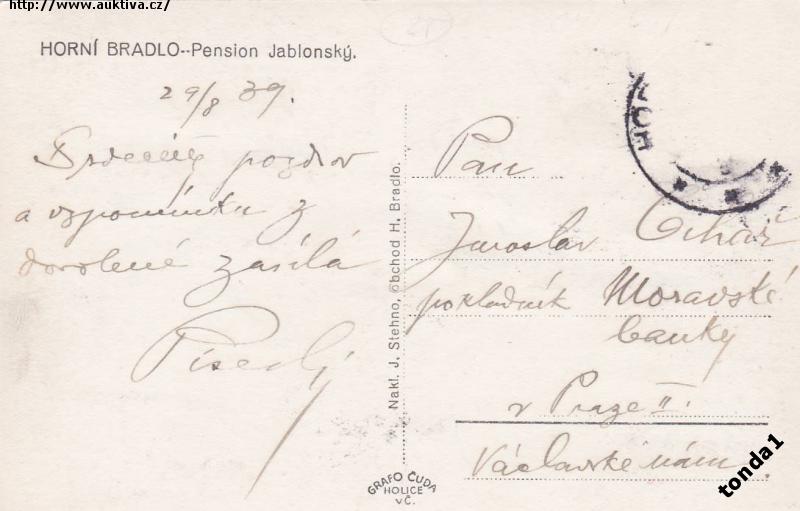 http://www.auktiva.cz/
HORNÍ BRADLO--Pension Jablonský.
29/8 39.
Srdečný pozdrav
a vzpomínku z
dovolené zasílá
Písecký
Nakl. J. Stehno, obchod H. Bradlo.
Pan
Jaroslav
pokladník Moravské
banky
v Praze II.
Václavské nám
GRAFO ČUDA
HOLICE
v Č.
HOR
tonda1